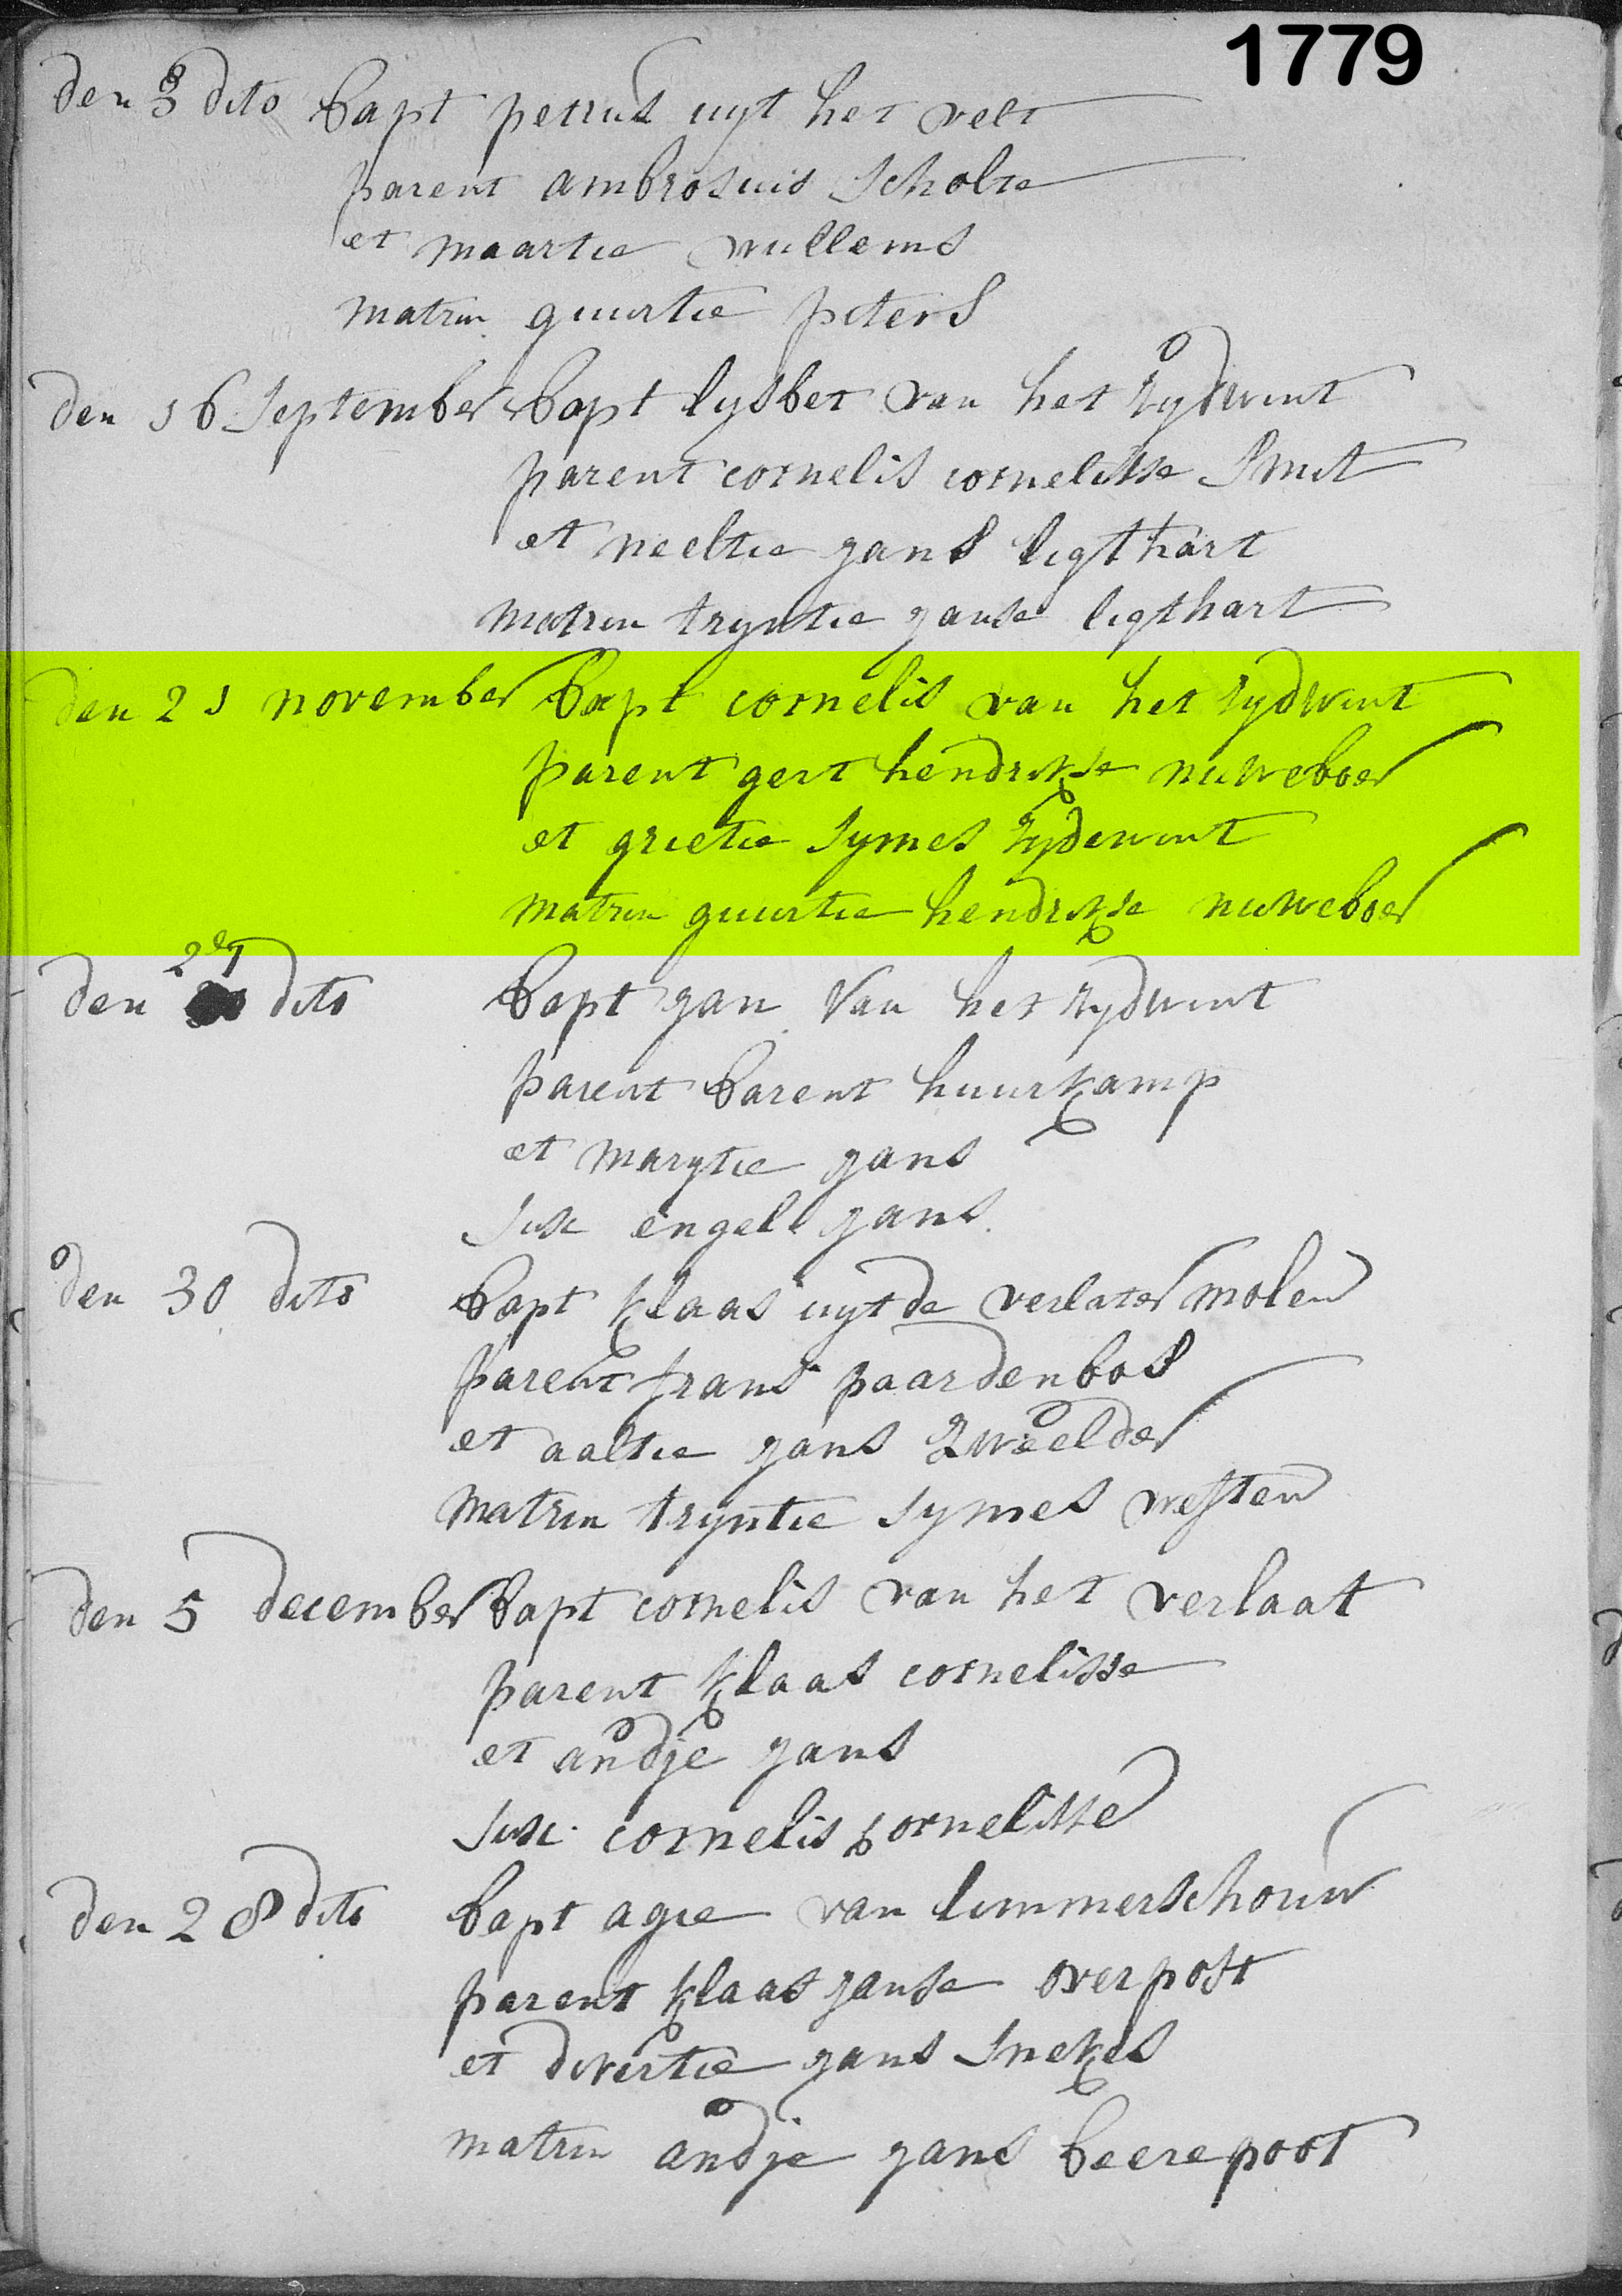 1779
den 8 dito bapt petrus uyt het velt
parent ambrosuis scholte
et maartie willems
matrin guurtie piters
den 16 september bapt lysbet van het zydwint
parent cornelis cornelisse smit
et neeltie jans ligthart
matrin tryntie janse ligthart
den 21 november bapt cornelis van het zydwint
parent gert hendrikse nuweboer
et grietie symes zydewint
matrin guurtie hendrikse nuweboer
den 27 dito bapt jan van het zydwint
parent barent huurkamp
et marytie jans
susc engel jans
den 30 dito bapt klaas uyt de verlater molen
parent frans paardenbos
et aaltie jans zweelder
matrin tryntie symes westen
den 5 december bapt cornelis van het verlaat
parent klaas cornelisse
et andje jans
susc cornelis cornelisse
den 28 dito bapt agie van limmerschouw
parent klaas janse overpost
et divertie jans snekes
matrin andje jans beerepoot